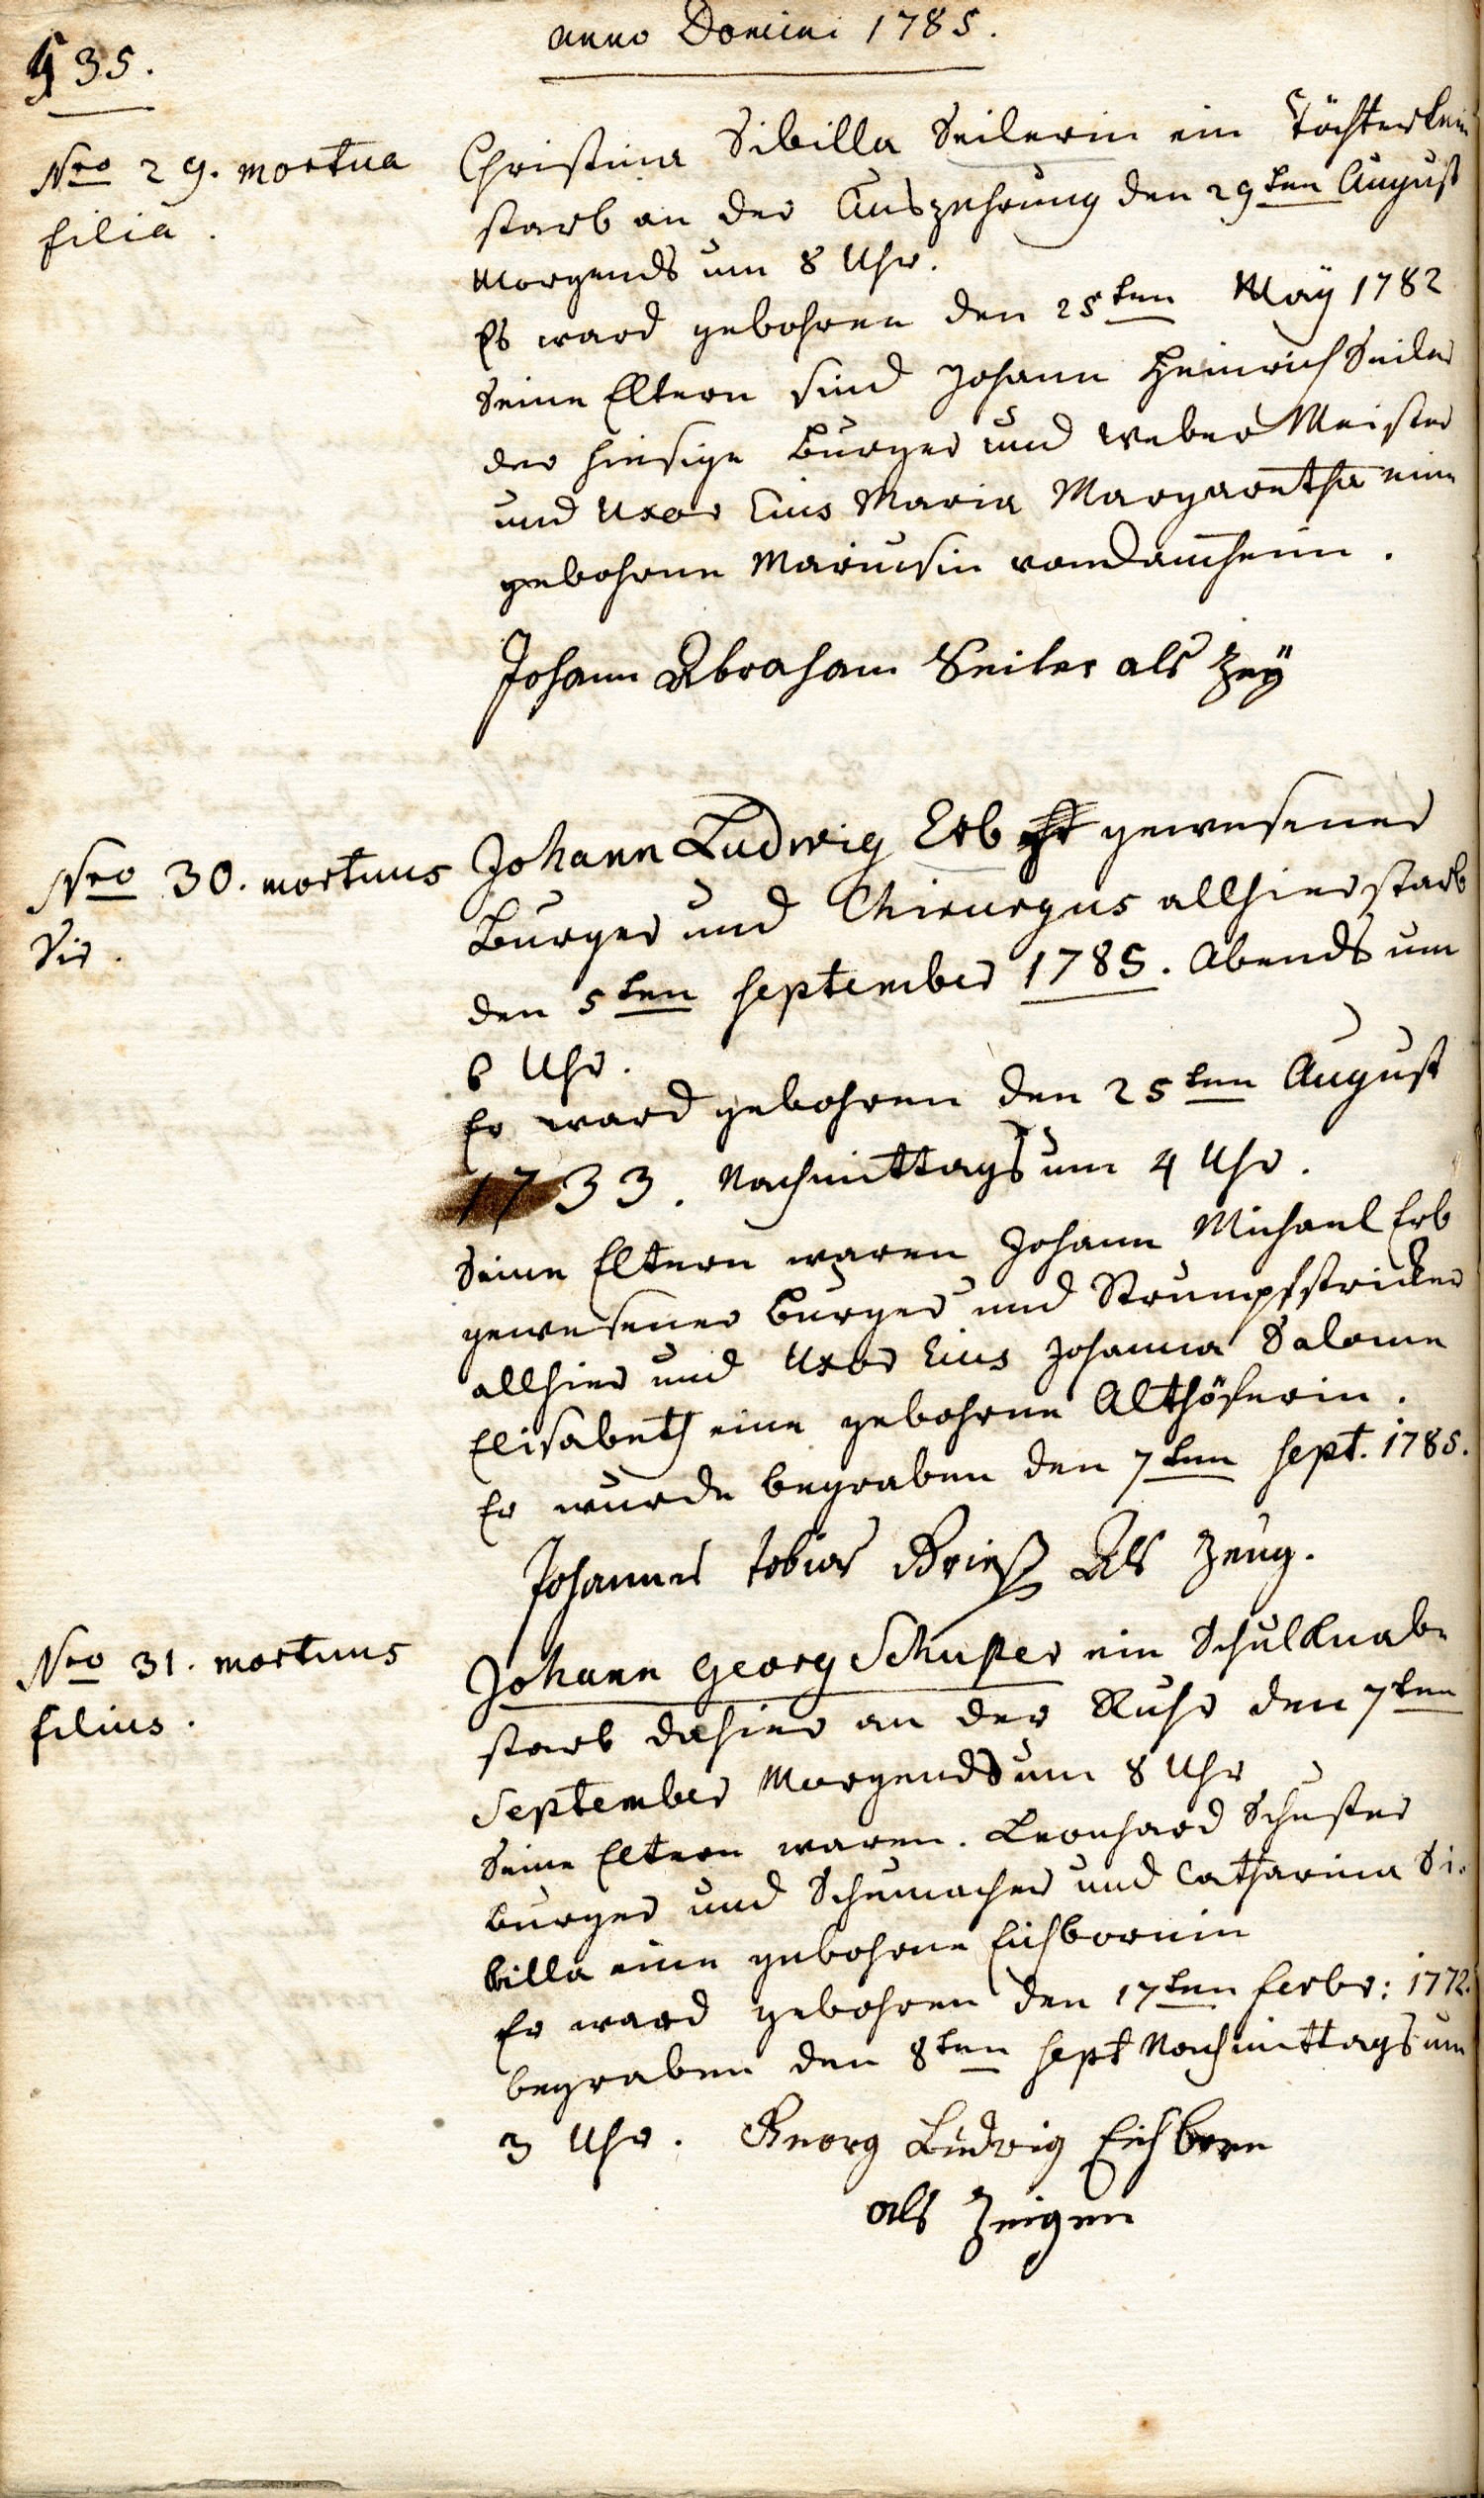 anno Domini 1785.
535.
Nro 29. mortua
filia.
Christina Sibilla Seilerin ein Töchterlein
starb an der Auszehrung den 29ten August
Morgends um 8 Uhr.
Es ward gebohren den 25ten Maÿ 1782
Seine Eltern sind Johann Heinrich Seiler
der hiesige Burger und Weber Meister
und Uxor Eius Maria Margaretha eine
gebohrne
Johann Abraham Seiler als Zeÿ
Nro 30. mortuus
Vir.
Johann Ludwig Erb gewesener
Burger und Chirurgus allhier starb
den 5ten September 1785. Abends um
6 Uhr.
Er ward gebohren den 25ten August
1733. Nachmittags um 4 Uhr.
Seine Eltern waren Johann Michael Erb
gewesener Burger und Strumpfstricker
allhier und Uxor Eius Johanna Salome
Elisabeth eine gebohrne Althöferin.
Er wurde begraben den 7ten Sept. 1785.
Johannes Tobias Brieß Als Zeug.
Nro 31. mortuus
filius.
Johann Georg Schuster ein Schulknabe
starb dahier an der Ruhr den 7ten
September Morgends um 8 Uhr
Seine Eltern waren. Leonhard Schuster
burger und Schumacher und Catharina Si-
billa eine gebohrne Eichbornin
Er ward gebohren den 17ten Ferbr: 1772.
begraben den 8ten Sept Nachmittags um
3 Uhr. Georg Ludwig Eichborn
als Zeigen